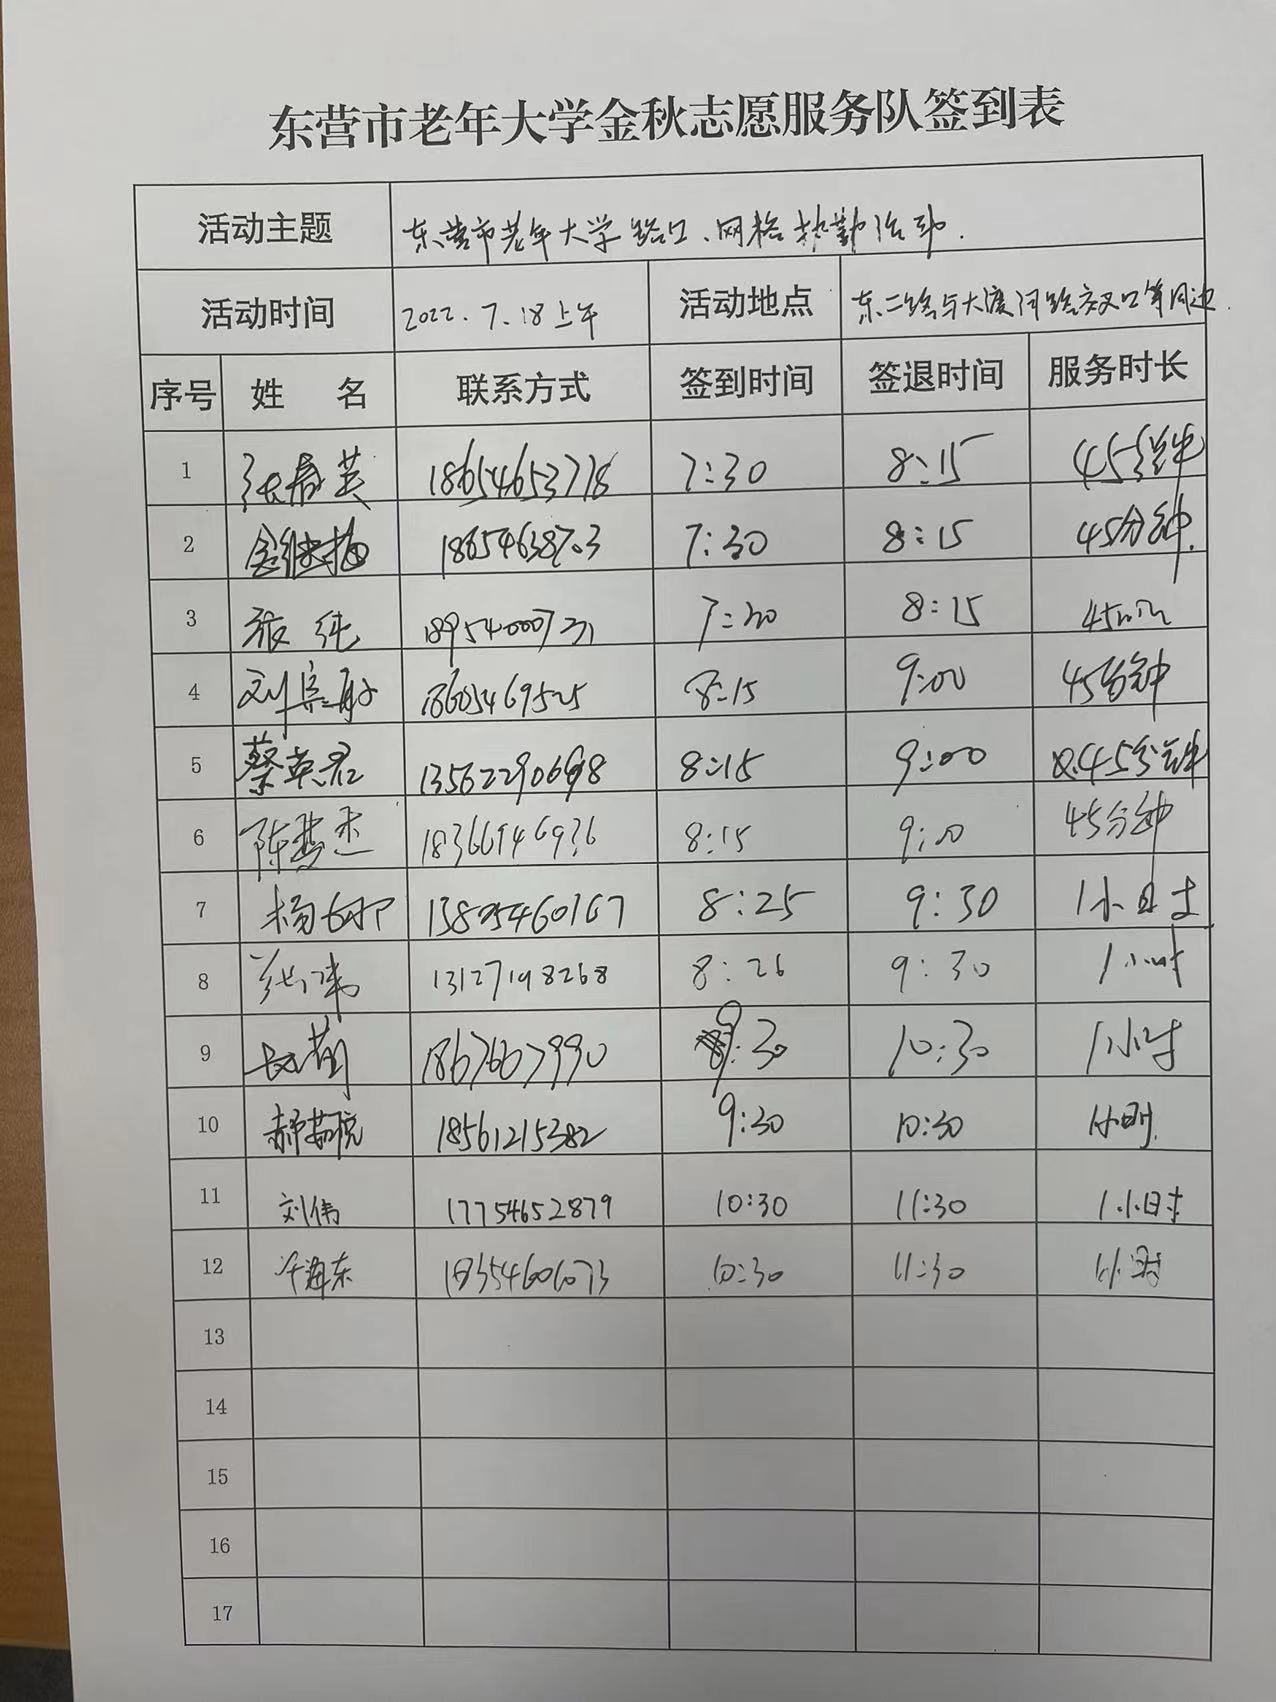 东营市老年大学金秋志愿服务队签到表
活动主题 东营市老年大学路口、网格执勤活动.
活动时间 2022.7.18上午 活动地点 东二路与大渡河路交叉口等周边.
序号 姓 名 联系方式 签到时间 签退时间 服务时长
1 张春英 18654653718 7:30 8:15 45分钟
2 金继梅 18654638703 7:30 8:15 45分钟.
3 张纯 18954000731 7:30 8:15 45min
4 刘 18605469525 8:15 9:00 45分钟
5 蔡英君 13562290698 8:15 9:00 45分钟
6 陈慧杰 18366946936 8:15 9:00 45分钟
7 杨娜 13805460167 8:25 9:30 1小时
8 13127198268 8:26 9:30 1小时
9 1867667990 9:30 10:30 1小时
10 郝茹悦 18561215382 9:30 10:30 1小时.
11 刘伟 17754652879 10:30 11:30 1小时
12 海东 18354606073 10:30 11:30 1小时
13
14
15
16
17